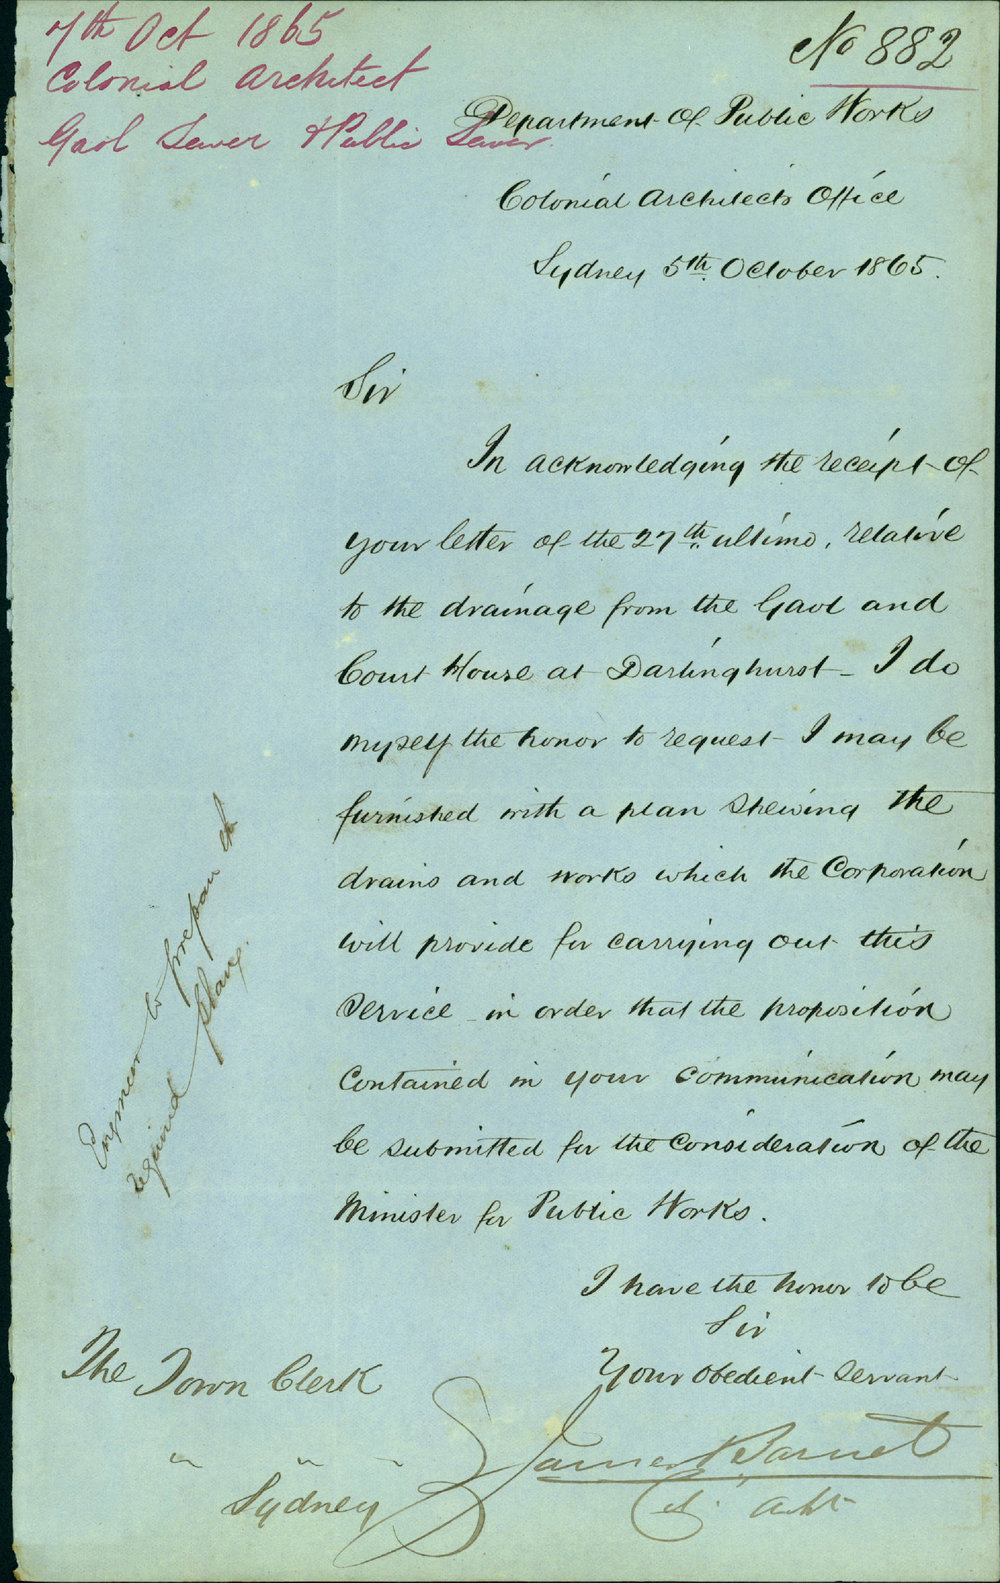 7th Oct 1865
Colonial Architect
Gaol Sewer & Public Sewer
No 882
Department of Public Works
Colonial Architects Office
Sydney 5th October 1865.
Sir
In acknowledging the receipt of
your letter of the 27th ultimo, relative
to the drainage from the Gaol and
Court House at Darlinghurst - I do
myself the honor to request I may be
furnished with a plan shewing the
drains and works which the Corporation
will provide for carrying out this
service in order that the proposition
contained in your communication may
be submitted for the consideration of the
Minister for Public Works.
I have the honor to be
Sir
Your obedient servant
James Barnet
Cl. Archt
The Town Clerk
" " "
Sydney
Engineer to prepare the
required plan.